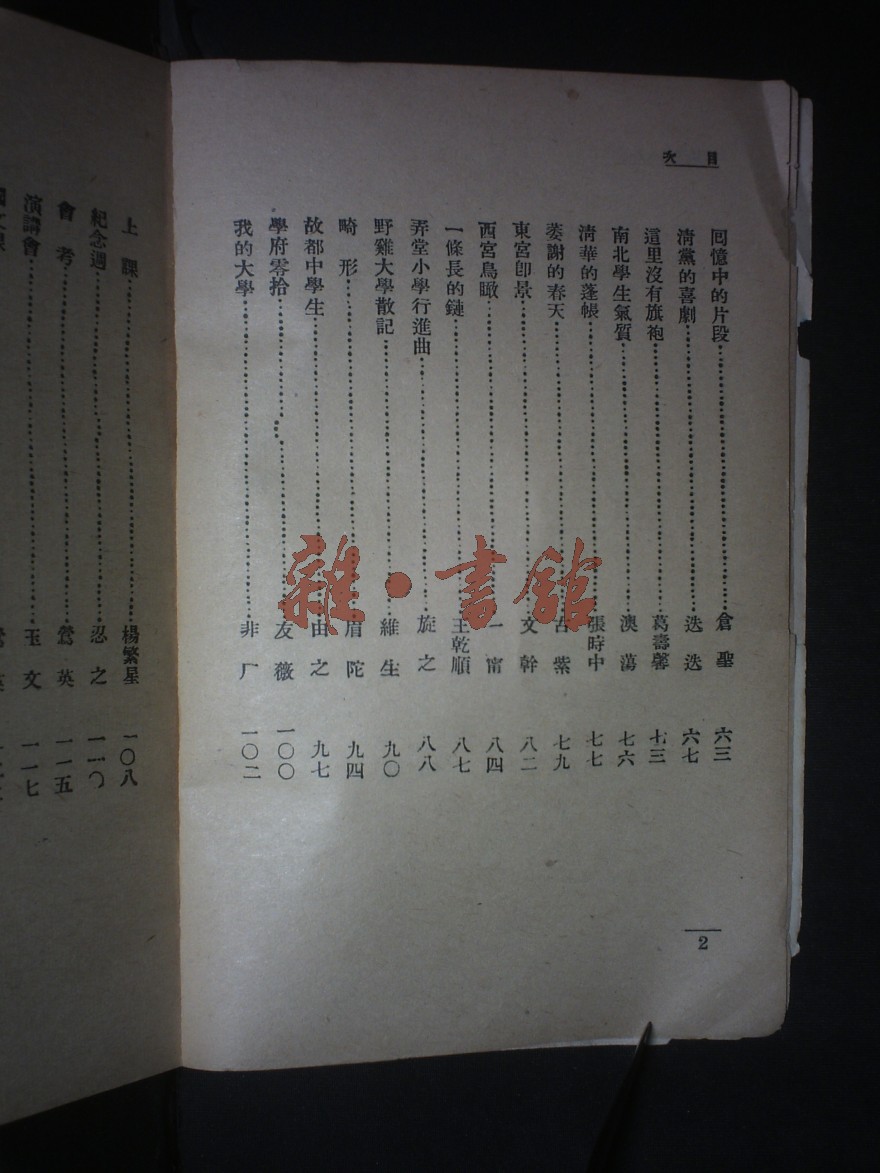 目次
回憶中的片段 倉聖 六三
清黨的喜劇 迭迭 六七
這里沒有旗袍 葛壽馨 七三
南北學生氣质 澳蕩 七六
清華的蓬帳 張時中 七七
萎謝的春天 古紫 七九
東宮卽景 文幹 八二
西宮鳥瞰 一甯 八四
一條長的鏈 王乾順 八七
弄堂小學行進曲 旋之 八八
野雞大學散記 維生 九〇
畸形 眉陀 九四
故都中學生 由之 九七
學府零拾 友薇 一〇〇
我的大學 非厂 一〇二
2
上課 楊繁星 一〇八
紀念週 忍之 一一〇
會考 鶯英 一一五
演講會 玉文 一一七
雜·書館